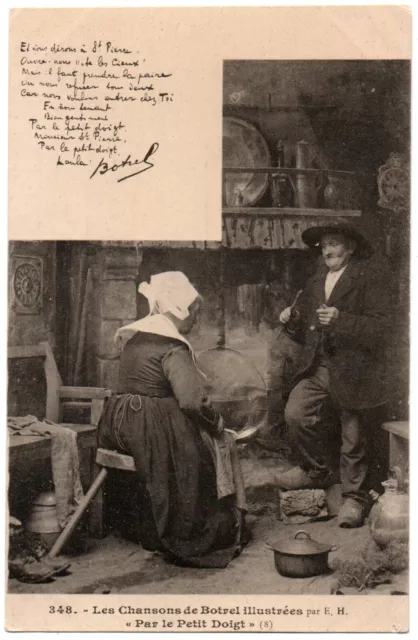 Et nous dirons à St Pierre.
Ouvre-nous "te les Cieux!
Mais il faut prendre la paire
Ou nous refuser tous deux
Car nous voulons entrer chez Toi
En nous tenant
Bien gentiment
Par le petit doigt,
Monsieur St Pierre,
Par le petit doigt,
Lonla.
Botrel
348. - Les Chansons de Botrel illustrées par E. H.
« Par le Petit Doigt » (8)